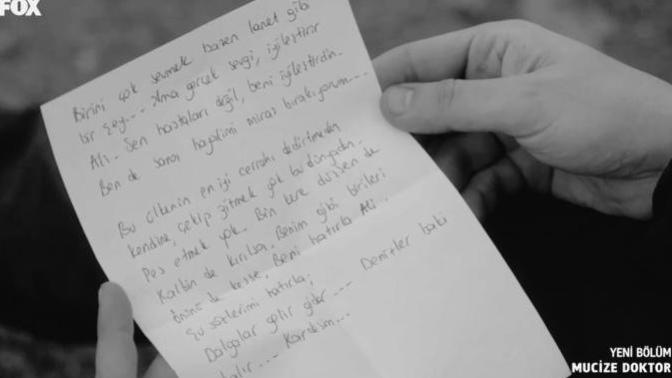 FOX
Birini çok sevmek bazen lanet gibi
bir şey... Ama gerçek sevgi, iyileştirir
Ali. Sen hastaları değil, beni iyileştirdin.
Ben de sana hayalimi miras bırakıyorum...
Bu ülkenin en iyi cerrahı dedirtmeden
kendine, çekip gitmek yok bu dünyadan.
Pes etmek yok. Bin kere düşsen de
Kalbin de kırılsa, Benim gibi birileri
önünü de kesse, Beni hatırla Ali..
Şu sözlerimi hatırla;
Dalgalar gelir gider... Denizler baki
kalır... Kardşım...
YENİ BÖLÜM
MUCİZE DOKTOR